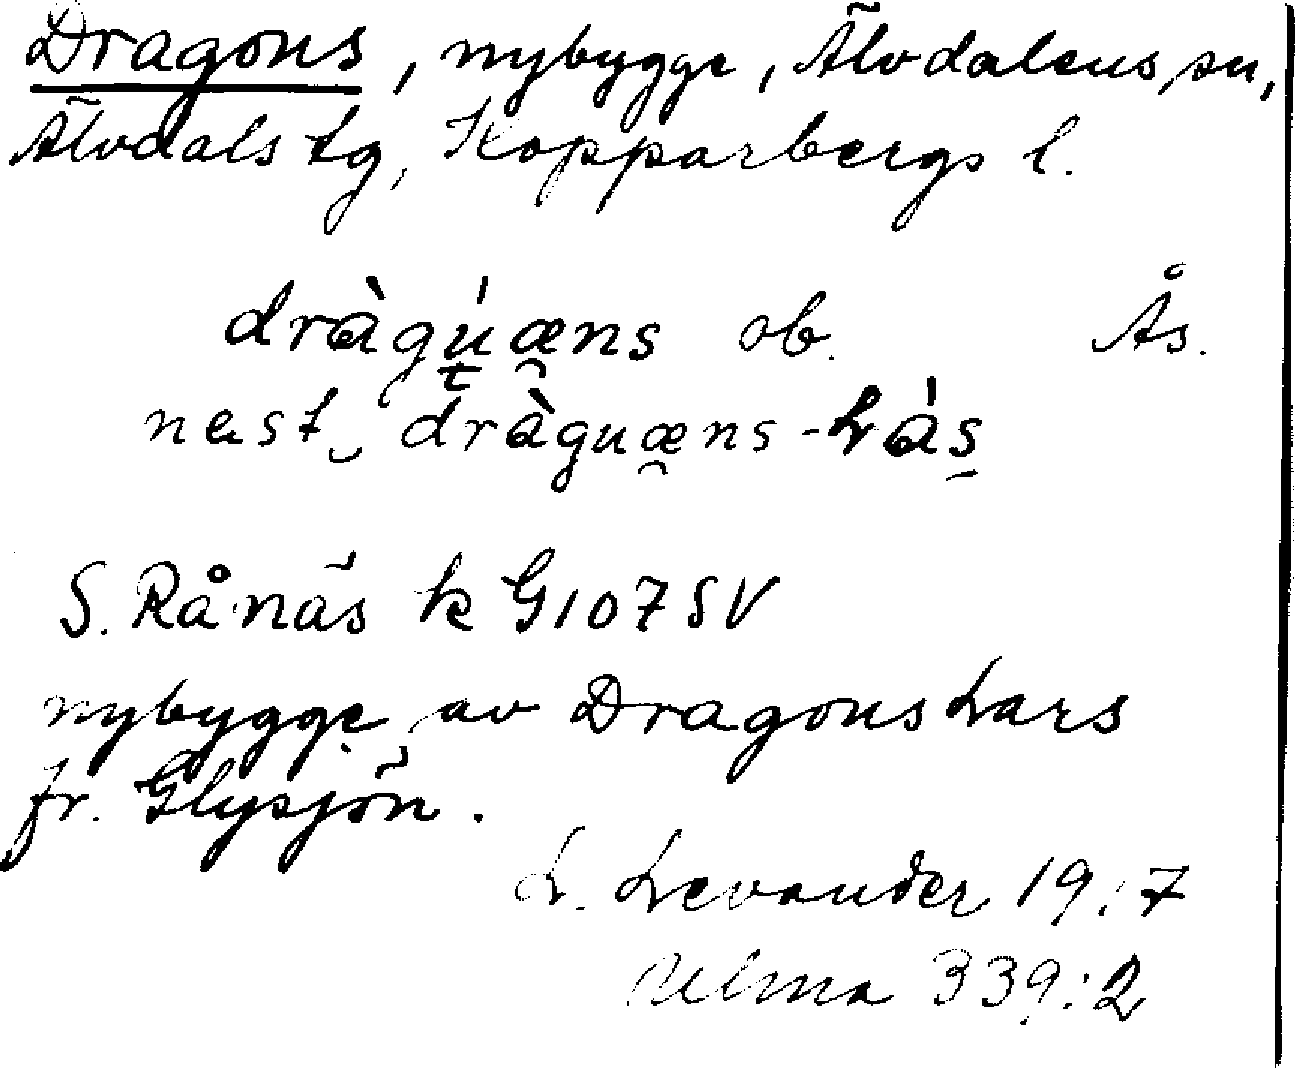 Dragons, nybygge, Älvdalens sn,
Älvdals tg, Kopparbergs l.
dràgú̱æ̯ns ob. Ås.
nest‿ dràguæ̯ns-Lás̱
S. Rånäs k G107SV
nybygge av Dragons Lars
fr. Glysjön.
L. Levander 19.7
Ulma 339:2